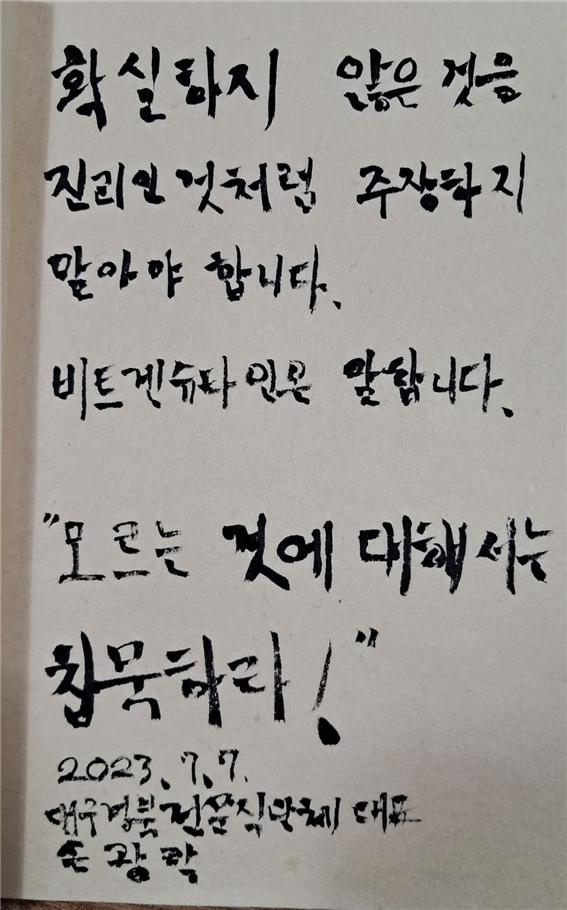 확실하지 않은 것을
진리인 것처럼 주장하지
말아야 합니다.
비트겐슈타인은 말합니다.
"모르는 것에 대해서는
침묵하라!"
2023.7.7.
대구경북전문직단체 대표
손광락